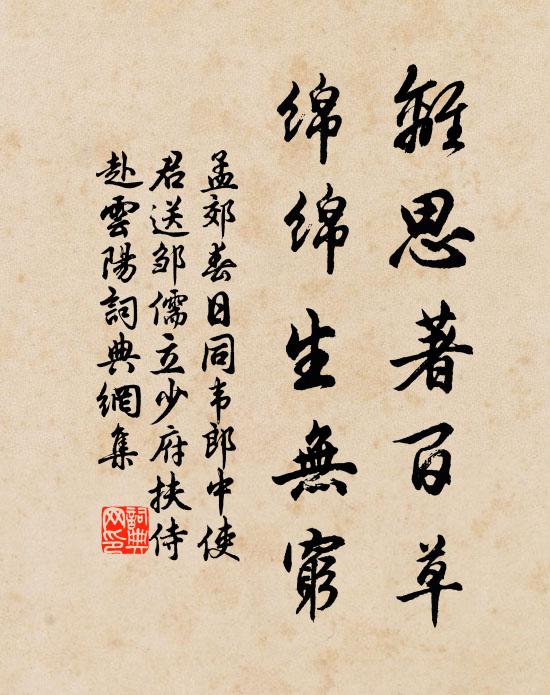 離思著百草
绵绵生無窮
孟郊春日同韦郎中使
君送邹儒立少府扶侍
赴雲陽詞典網集
詞典
网印